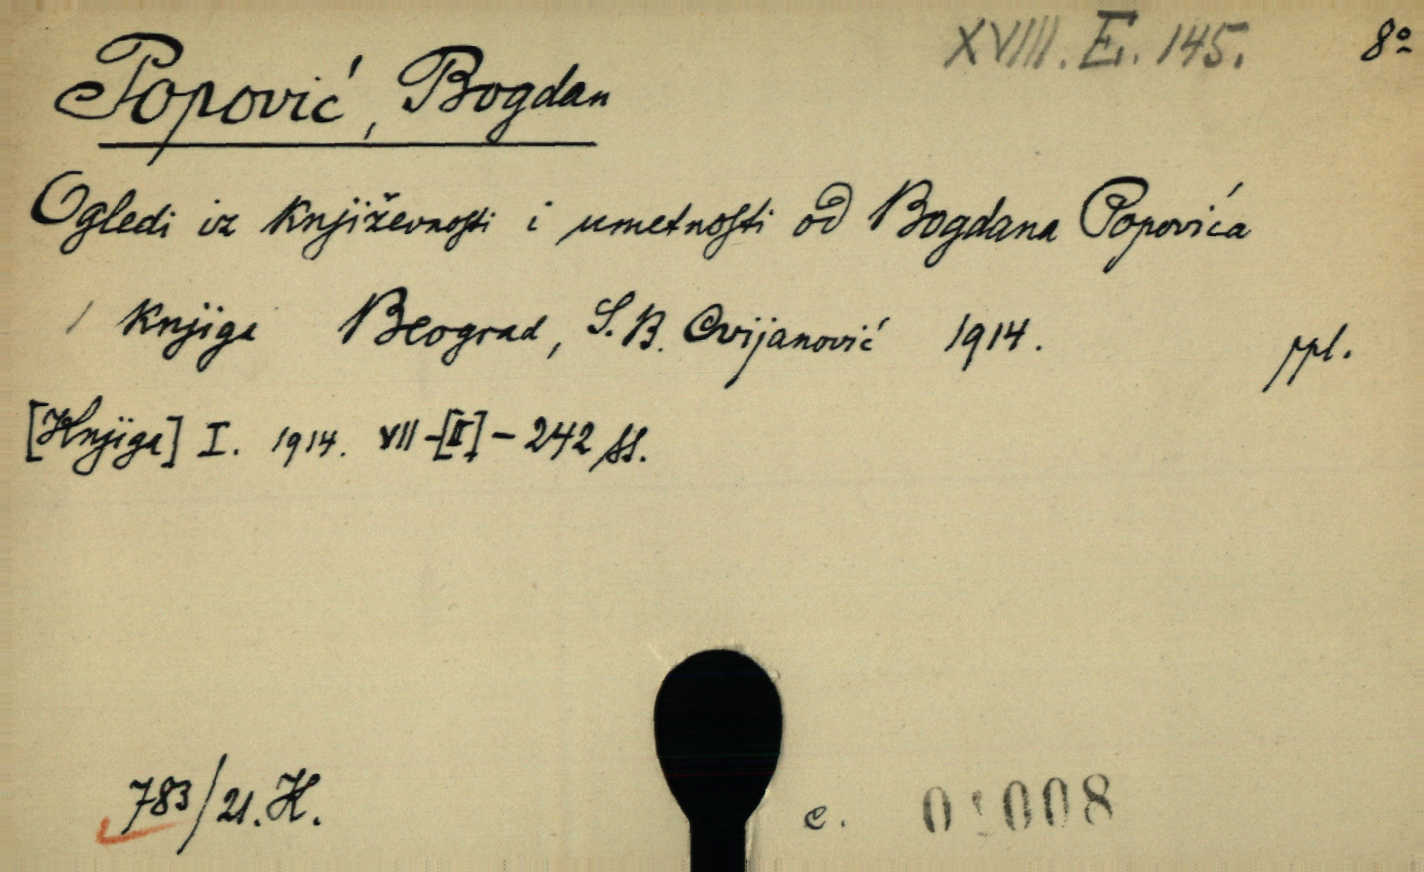 XVIII. E. 145. 8º
Popović, Bogdan
Ogledi iz književnosti i umetnosti od Bogdana Popovića
/ Knjiga Beograd, S. B. Cvijanović 1914. ppl.
[Knjiga] I. 1914. VII-[II]-242 ss.
783/21. H.
c.